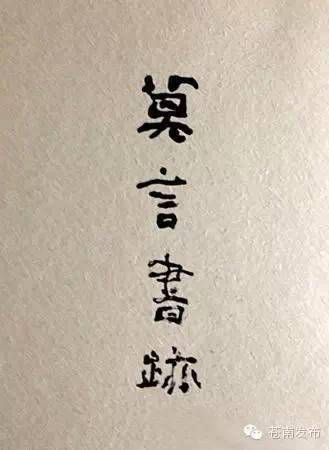 莫言書跡
苍南发布